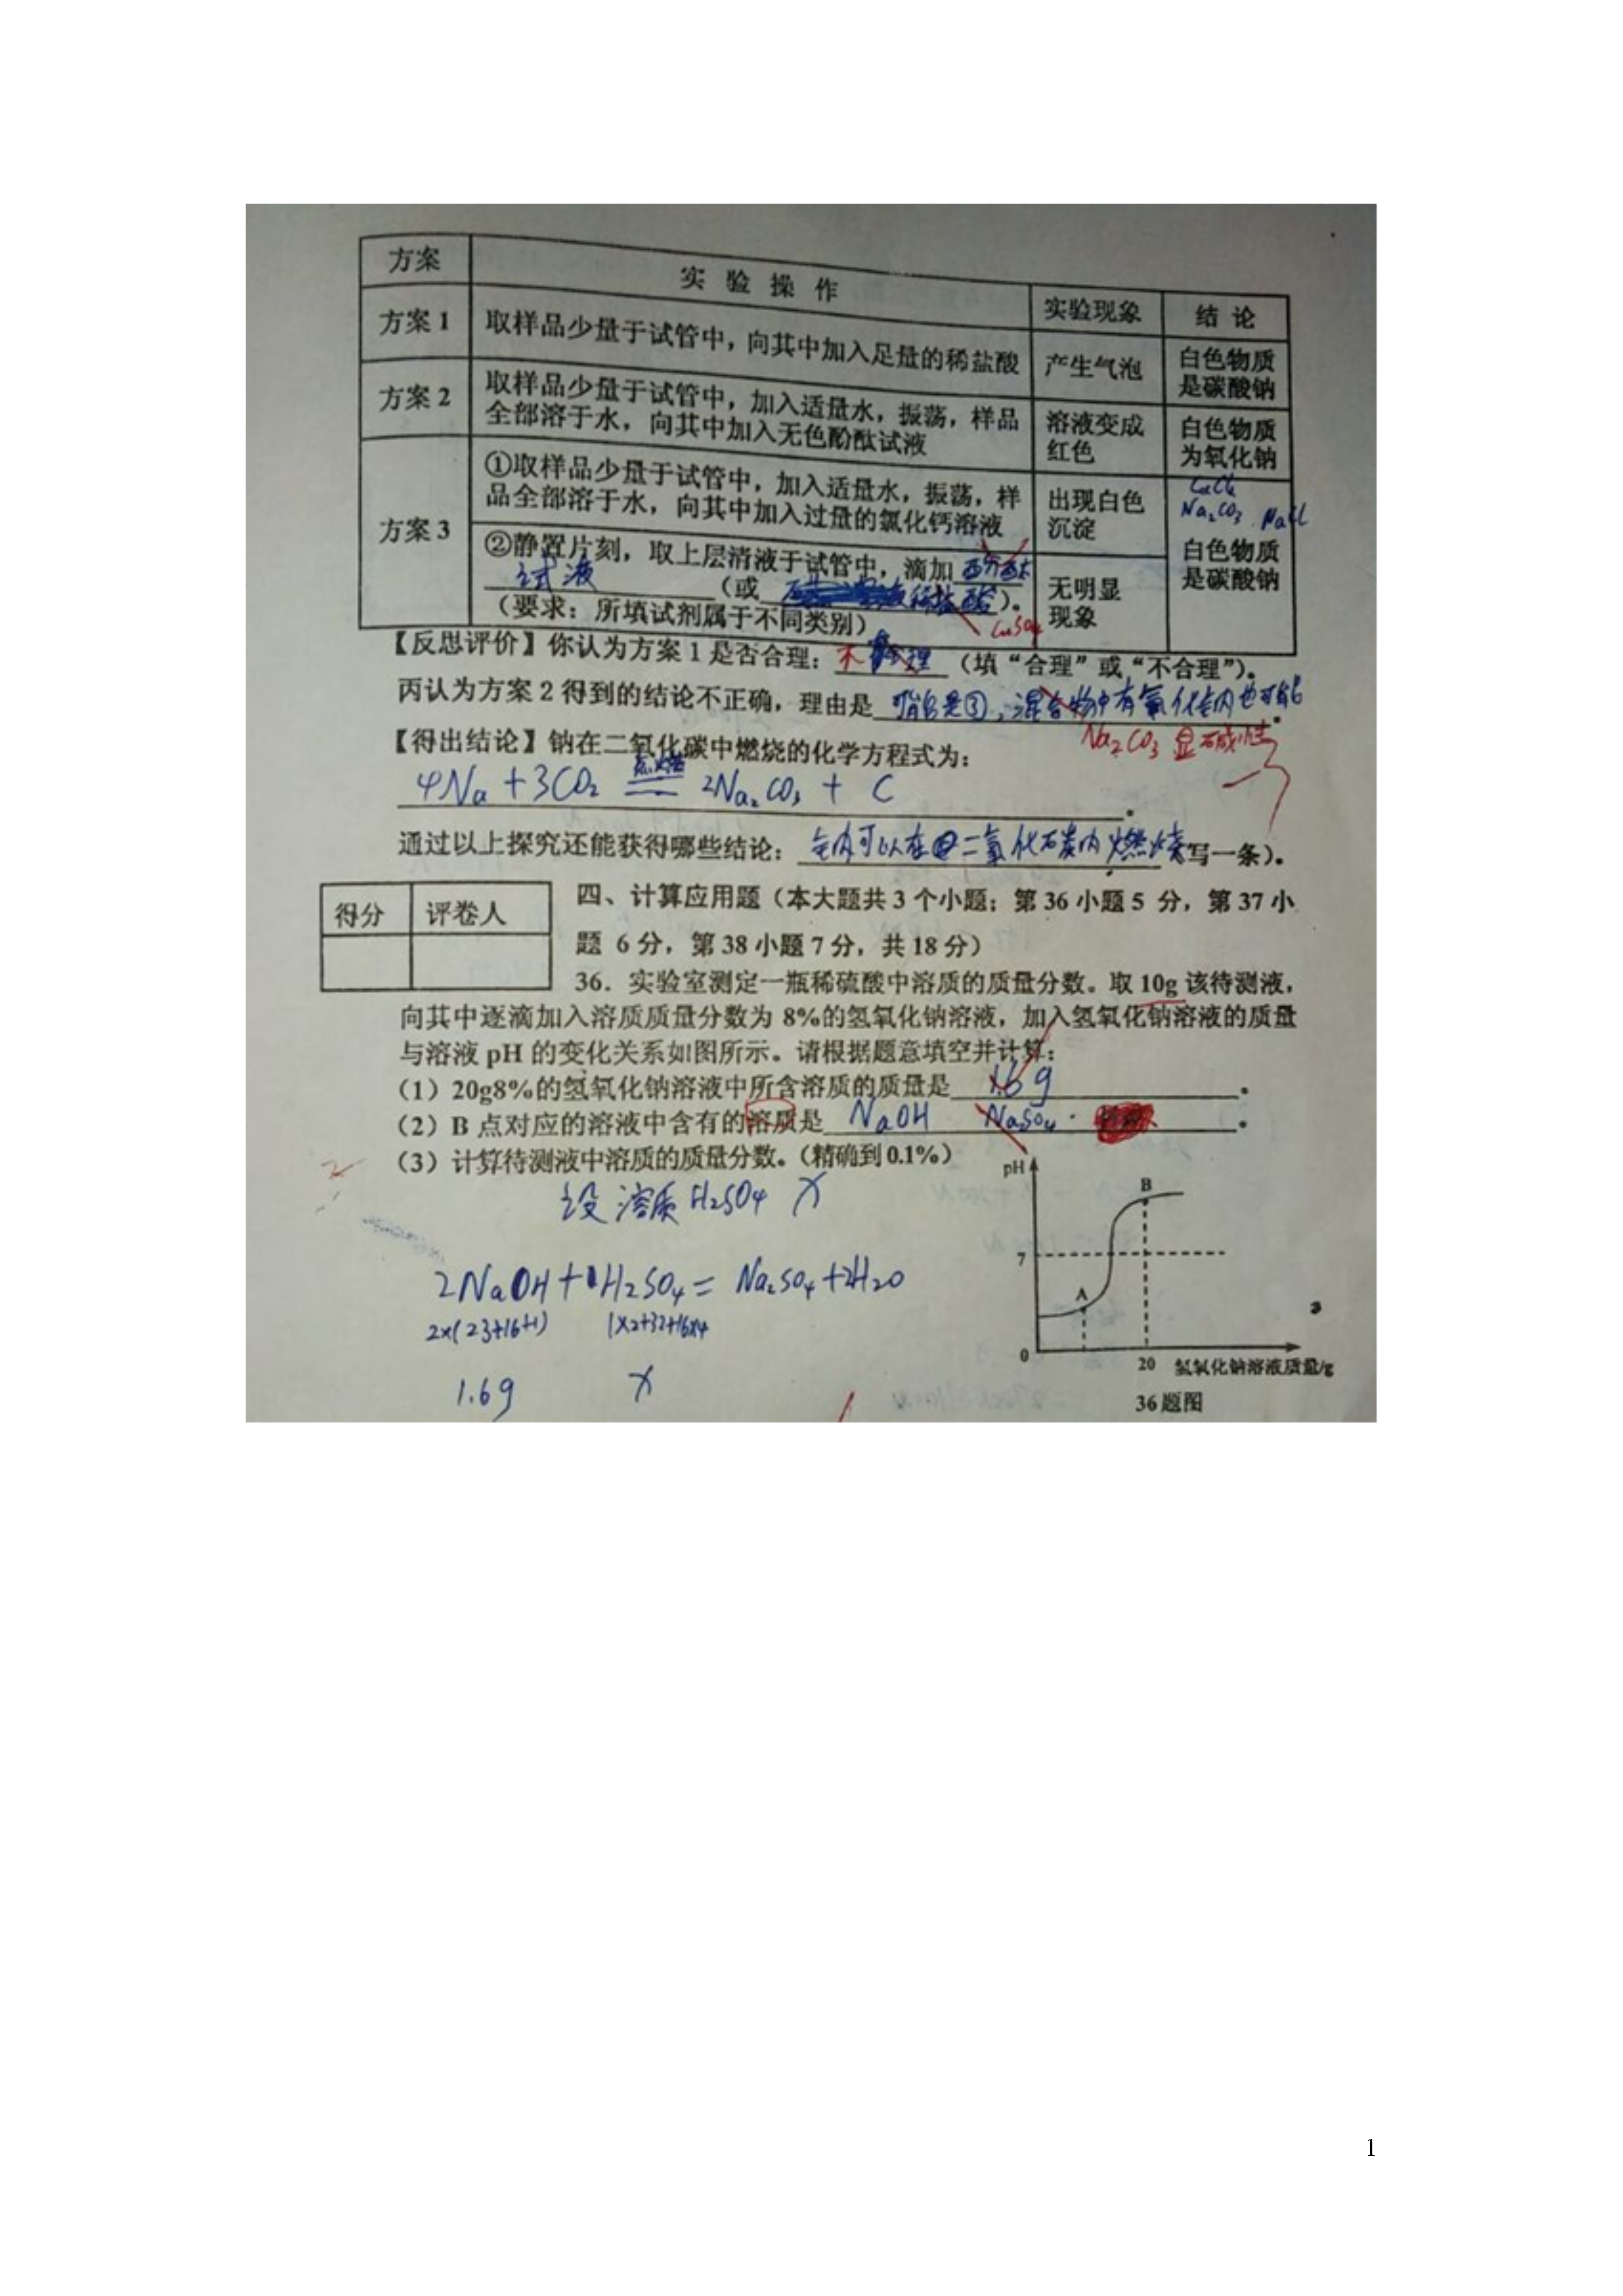 方案
实验操作
实验现象
结论
方案1
取样品少量于试管中，向其中加入足量的稀盐酸
产生气泡
白色物质
是碳酸钠
方案2
取样品少量于试管中，加入适量水，振荡，样品
全部溶于水，向其中加入无色酚酞试液
溶液变成
红色
白色物质
为氧化钠
方案3
①取样品少量于试管中，加入适量水，振荡，样
品全部溶于水，向其中加入过量的氯化钙溶液
出现白色
沉淀
CaCl₂
Na₂CO₃ NaCl
白色物质
是碳酸钠
②静置片刻，取上层清液于试管中，滴加 酚酞
试液（或 稀盐酸）。
CuSO₄
（要求：所填试剂属于不同类别）
无明显
现象
【反思评价】你认为方案1是否合理：不合理（填“合理”或“不合理”）。
丙认为方案2得到的结论不正确，理由是 可能是③，混合物中有氧化钠也可能。
Na₂CO₃ 显碱性
【得出结论】钠在二氧化碳中燃烧的化学方程式为：
4Na + 3CO₂ 点燃 2Na₂CO₃ + C。
通过以上探究还能获得哪些结论：钠可以在二氧化碳内燃烧 写一条）。
得分 评卷人
四、计算应用题（本大题共3个小题；第36小题5 分，第37小
题 6分，第38小题7分，共18分）
36．实验室测定一瓶稀硫酸中溶质的质量分数。取10g该待测液，
向其中逐滴加入溶质质量分数为 8%的氢氧化钠溶液，加入氢氧化钠溶液的质量
与溶液 pH 的变化关系如图所示。请根据题意填空并计算：
（1）20g8%的氢氧化钠溶液中所含溶质的质量是 1.6g。
（2）B 点对应的溶液中含有的溶质是 NaOH NaSO₄。
（3）计算待测液中溶质的质量分数。（精确到0.1%）
设溶质H₂SO₄ X
2NaOH + 1H₂SO₄ = Na₂SO₄ + 2H₂O
2×(23+16+1) 1×2+32+16×4
1.6g X
pH
B
7
A
0
20 氢氧化钠溶液质量/g
36题图
1